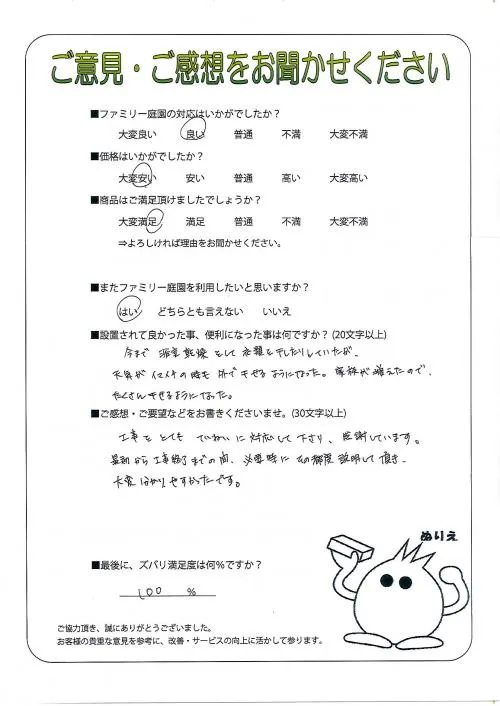 ご意見・ご感想をお聞かせください
■ファミリー庭園の対応はいかがでしたか？
大変良い 良い 普通 不満 大変不満
■価格はいかがでしたか？
大変安い 安い 普通 高い 大変高い
■商品はご満足頂けましたでしょうか？
大変満足 満足 普通 不満 大変不満
⇒よろしければ理由をお聞かせください。
■またファミリー庭園を利用したいと思いますか？
はい どちらとも言えない いいえ
■設置されて良かった事、便利になった事は何ですか？(20文字以上)
今まで 浴室乾燥 として 衣類を干したりしていたが、
天気が イマイチの時も 外で干せるようになった。家族が増えたので、
たくさん干せるようになった。
■ご感想・ご要望などをお書きくださいませ。(30文字以上)
工事も とても ていねいに 対応して下さり、感謝しています。
最初から工事終了までの間、必要時に その都度説明して頂き、
大変 わかりやすかったです。
ぬりえ
■最後に、ズバリ満足度は何％ですか？
100 %
ご協力頂き、誠にありがとうございました。
お客様の貴重な意見を参考に、改善・サービスの向上に活かして参ります。